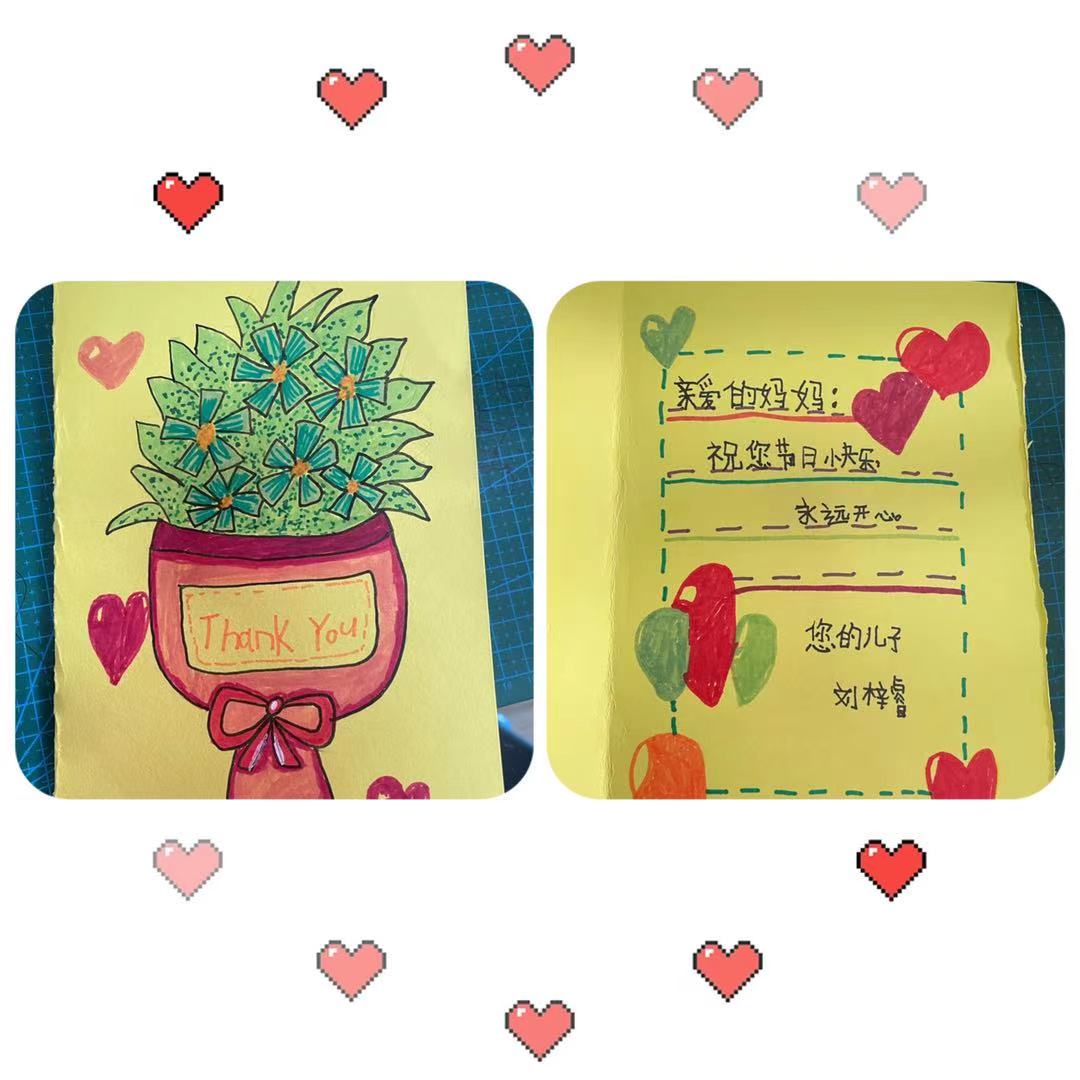 Thank You!
亲爱的妈妈:
祝您节日快乐,
永远开心。
您的儿子
刘梓睿